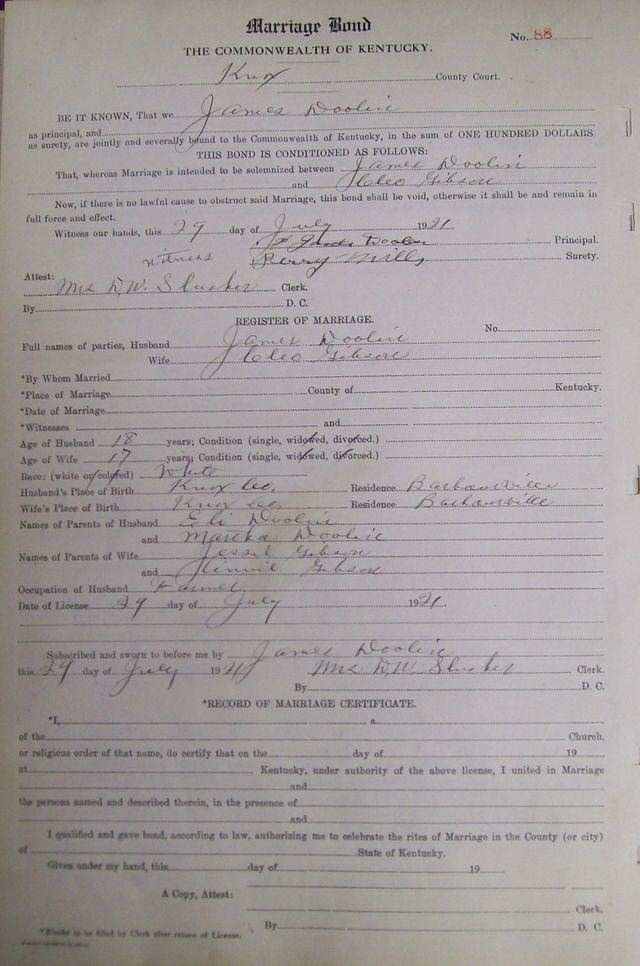 Marriage Bond
No. 88
THE COMMONWEALTH OF KENTUCKY.
Knox County Court.
BE IT KNOWN, That we James Doolin
as principal, and
as surety, are jointly and severally bound to the Commonwealth of Kentucky, in the sum of ONE HUNDRED DOLLARS
THIS BOND IS CONDITIONED AS FOLLOWS:
That, whereas Marriage is intended to be solemnized between James Doolin
and Cleo Gibson
Now, if there is no lawful cause to obstruct said Marriage, this bond shall be void, otherwise it shall be and remain in
full force and effect.
Witness our hands, this 29 day of July 1921
James Doolin Principal.
Witness Perry Mills Surety.
Attest:
Mrs D.W. Slusher Clerk.
By D. C.
REGISTER OF MARRIAGE.
No.
Full names of parties, Husband James Doolin
Wife Cleo Gibson
*By Whom Married
*Place of Marriage County of Kentucky.
*Date of Marriage
*Witnesses and
Age of Husband 18 years; Condition (single, widowed, divorced.)
Age of Wife 17 years; Condition (single, widowed, divorced.)
Race: (white or colored) White
Husband's Place of Birth Knox Co. Residence Barbourville
Wife's Place of Birth Knox Co. Residence Barbourville
Names of Parents of Husband Eli Doolin
and Martha Doolin
Names of Parents of Wife Jessie Gibson
and Gibson
Occupation of Husband Farmer
Date of License 29 day of July 1921
Subscribed and sworn to before me by James Doolin
this 29 day of July 1921 Mrs D.W. Slusher Clerk.
By D. C.
*RECORD OF MARRIAGE CERTIFICATE.
*I, a
of the Church,
or religious order of that name, do certify that on the day of 19
at Kentucky, under authority of the above license, I united in Marriage
and
the persons named and described therein, in the presence of
and
I qualified and gave bond, according to law, authorizing me to celebrate the rites of Marriage in the County (or city)
of State of Kentucky.
Given under my hand, this day of 19
A Copy, Attest:
Clerk.
By D. C.
*Blanks to be filled by Clerk after return of License.